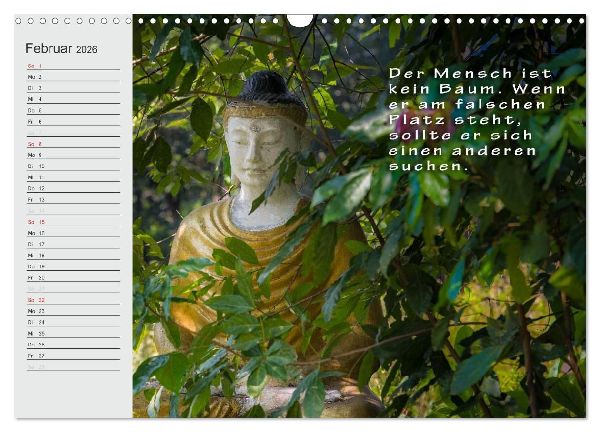 Februar 2026
So 1
Mo 2
Di 3
Mi 4
Do 5
Fr 6
Sa 7
So 8
Mo 9
Di 10
Mi 11
Do 12
Fr 13
Sa 14
So 15
Mo 16
Di 17
Mi 18
Do 19
Fr 20
Sa 21
So 22
Mo 23
Di 24
Mi 25
Do 26
Fr 27
Sa 28
Der Mensch ist
kein Baum. Wenn
er am falschen
Platz steht,
sollte er sich
einen anderen
suchen.